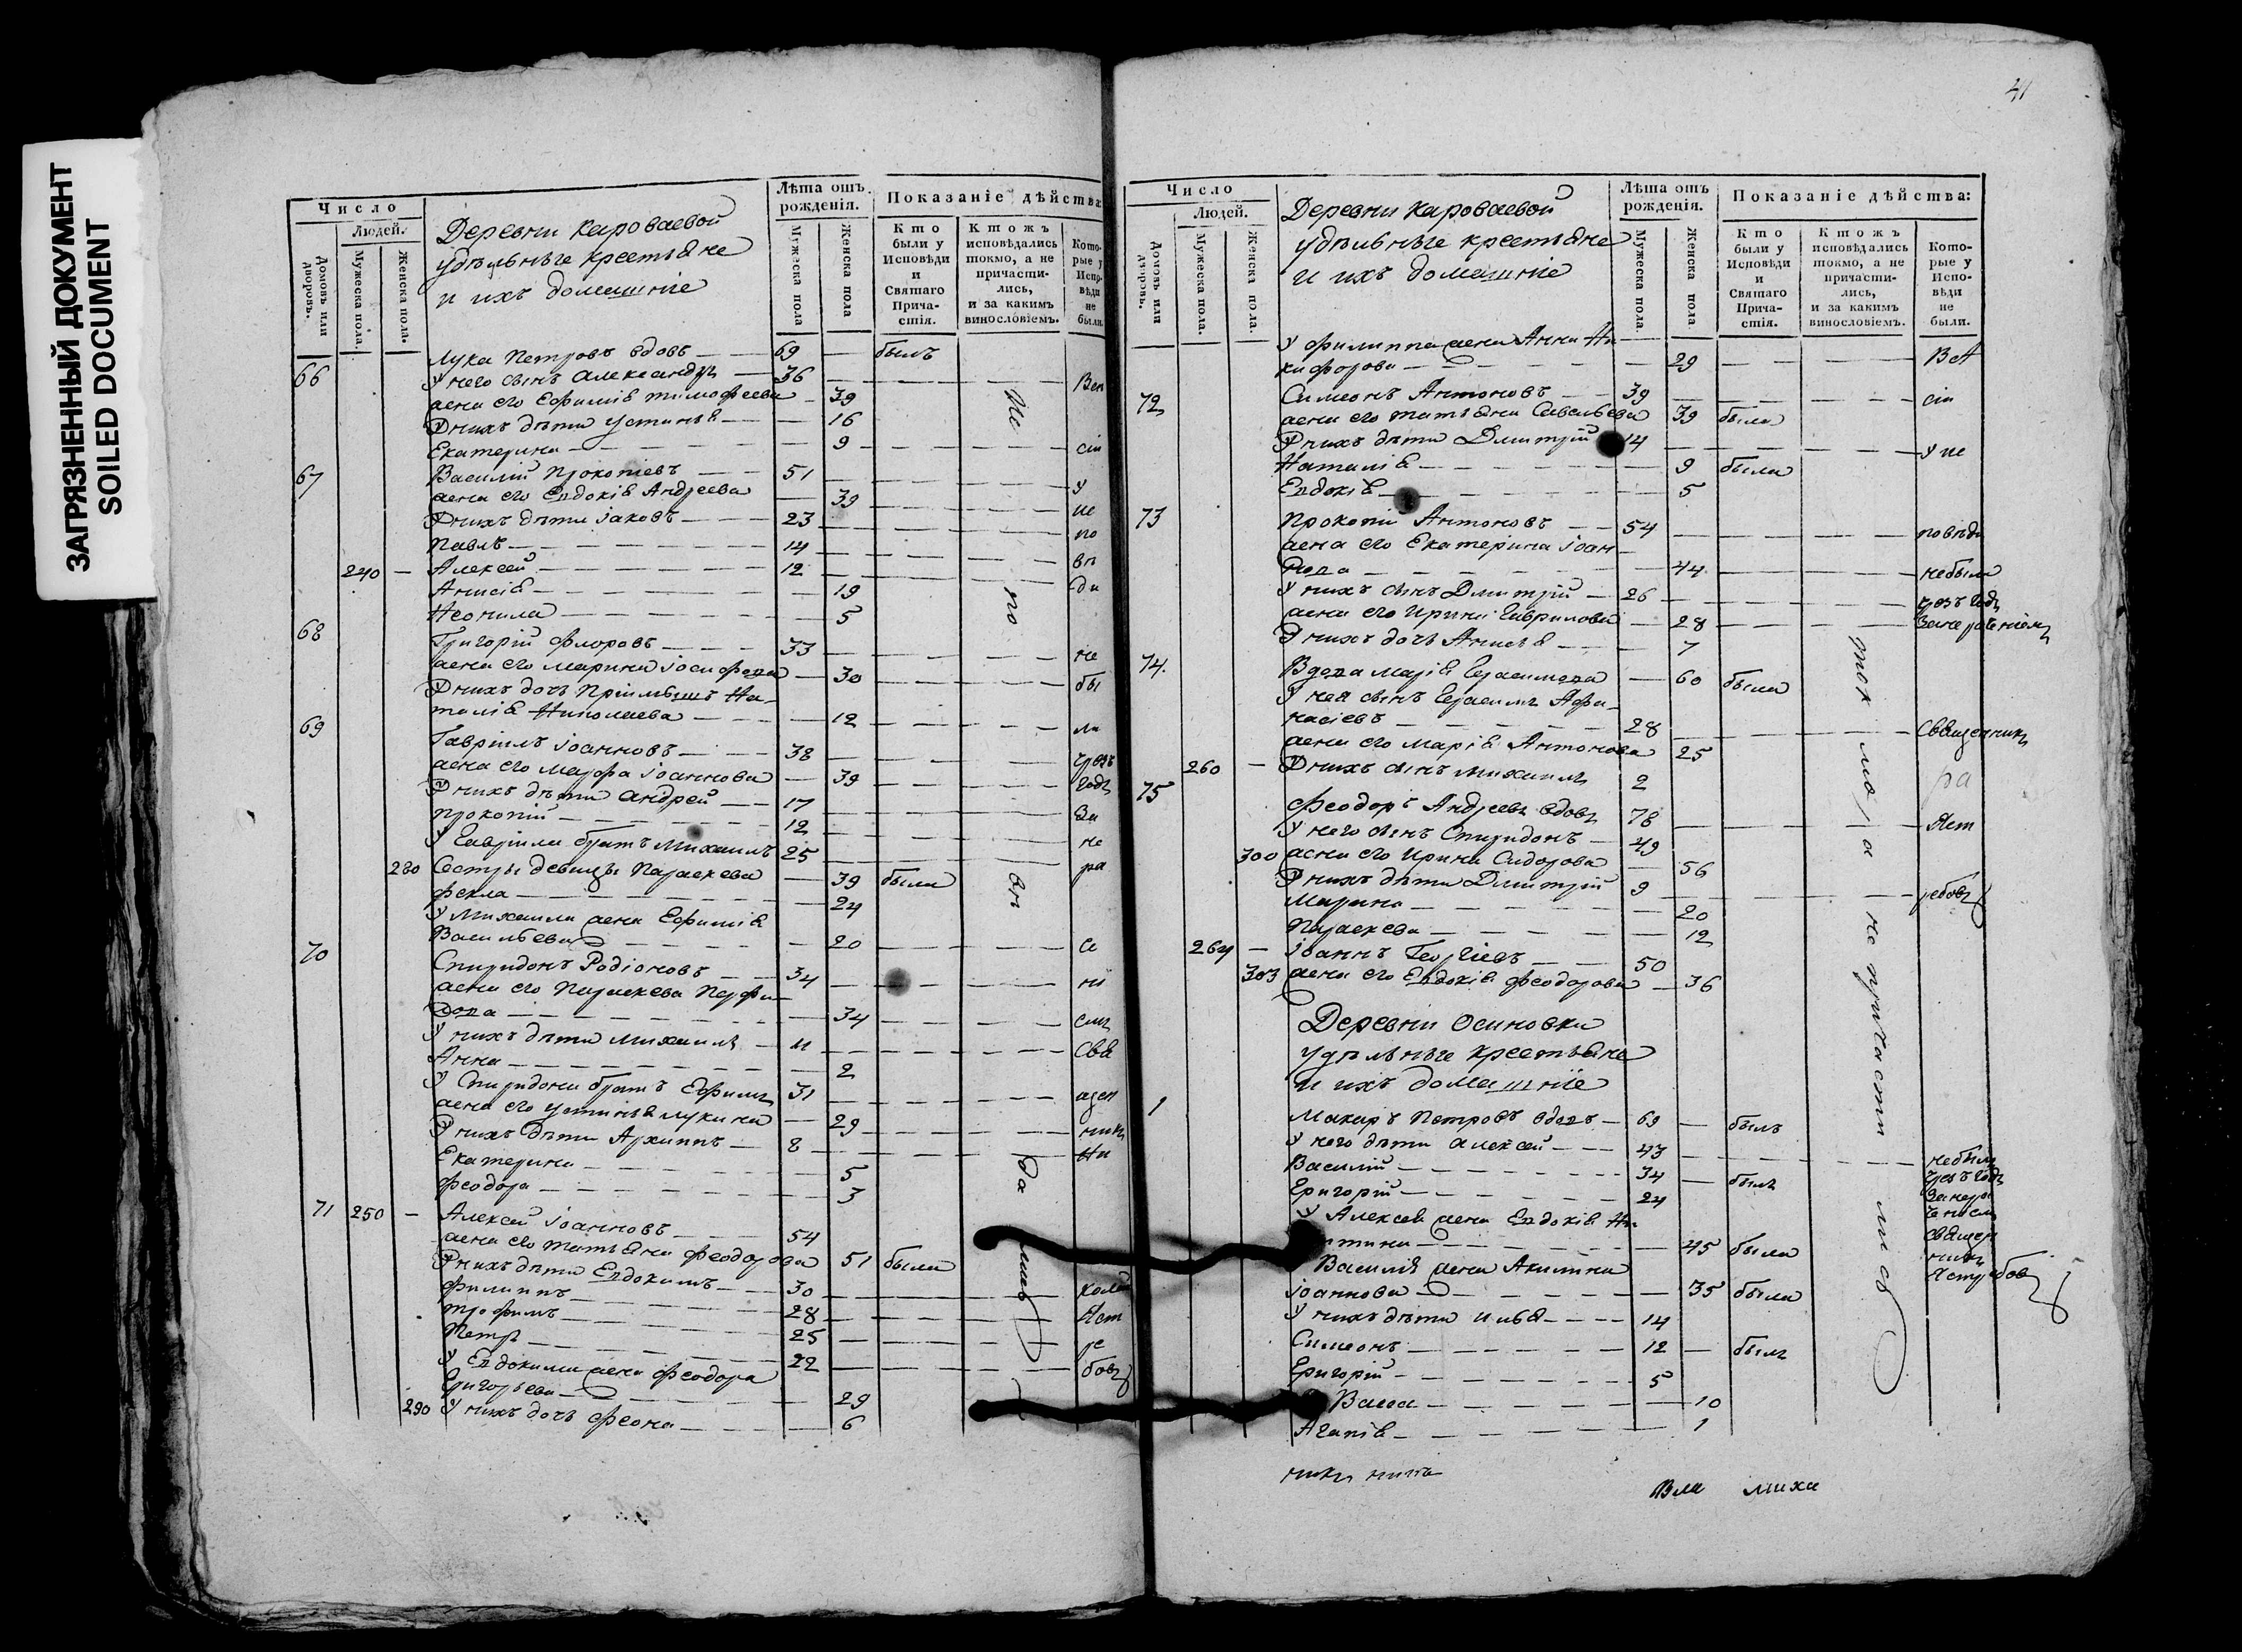 ЗАГРЯЗНЕННЫЙ ДОКУМЕНТ
SOILED DOCUMENT
Число
Людей.
Домовъ или дворовъ.
Мужеска пола.
Женска пола.
Деревни Кароваевой
удѣльныге крестьяне
и ихъ домашніе
Лѣта отъ рожденія.
Мужеска пола
Женска пола
Показаніе дѣйства:
Кто были у Исповѣди и Святаго Причастія.
Ктожъ исповѣдались токмо, а не причастились, и за какимъ винословіемъ.
Которые у Исповѣди не были.
66 Лука Петровъ вдовъ 69 — былъ
У него сынъ Александръ 36
жена его Ефимія Тимофеева 39
У нихъ дѣти Устинья 16
Екатерина 9
67 Василій Прокопіевъ 51
жена его Евдокія Андреева 39
У нихъ дѣти Іаковъ 23
Павлъ 14
240 — Алексей 12
Анисія 19
Неонила 5
68 Григорій Флоровъ 33
жена его Марина Іосифова 30
У нихъ дочь Пріимышъ На-
талія Николаева 12
69 Гавріилъ Іоанновъ 38
жена его Марфа Іоаннова 39
У нихъ дѣти Андрей 17
Прокопій 12
У Гавріила братъ Михаилъ 25
280 Сестры девицы Параскева 39 были
Фекла 24
У Михаила жена Ефимія
Васильева 20
70 Спиридонъ Родіоновъ 34
жена его Параскева Перфи-
лова 34
У нихъ дѣти Михаилъ 11
Анна 2
У Спиридона братъ Ефимъ 31
жена его Устинья Лукина 29
У нихъ дѣти Архиппъ 8
Екатерина 5
Феодора 3
71 250 — Алексей Іоанновъ 54
жена его Татьяна Феодорова 51 были
У нихъ дѣти Евдокимъ 30
Филиппъ 28
Трофимъ 25
Петръ 22
У Евдокима жена Феодора
Григорьева 29
290 У нихъ дочь Феона 6
41
Число
Людей.
Домовъ или дворовъ.
Мужеска пола.
Женска пола.
Деревни Кароваевой
удѣльныге крестьяне
и ихъ домашніе
Лѣта отъ рожденія.
Мужеска пола.
Женска пола
Показаніе дѣйства:
Кто были у Исповѣди и Святаго Причастія.
Ктожъ исповѣдались токмо, а не причастились, и за какимъ винословіемъ.
Которые у Исповѣди не были.
У Филиппа жена Анна Ни-
кифорова 29
72 Симеонъ Антоновъ 39
жена его Татьяна Савельева 39 были
У нихъ дѣти Дмитрій 14
Наталія 9 были
Евдокія 5
73 Прокопій Антоновъ 54
жена его Екатерина Іоан-
нова 44 небыли
У нихъ сынъ Дмитрій 26
жена его Ирина Гаврилова 28
У нихъ дочь Анисья 7
74. Вдова Марія Герасимова 60 была
У нея сынъ Герасимъ Афа-
насіевъ 28 Священникъ
жена его Марія Антонова 25
260 — У нихъ сынъ Михаилъ 2
75 Феодоръ Андреевъ вдовъ 78
У него сынъ Спиридонъ 49
300 жена его Ирина Сидорова 56
У нихъ дѣти Дмитрій 9
Марина 20
Параскева 12
264 — Іоаннъ Георгіевъ 50
303 жена его Евдокія Феодорова 36
Деревни Осиновки
удѣльныге крестьяне
и ихъ домашніе
1 Макаръ Петровъ вдовъ 69 — былъ
У него дѣти Алексей 43
Василій 34 — былъ
Григорій 24
У Алексея жена Евдокія
45 была
Василія жена Акилина
Іоаннова 35 были
У нихъ дѣти Илья 14
Симеонъ 12 — былъ
Григорій 5
Васса 10
Агапія 1